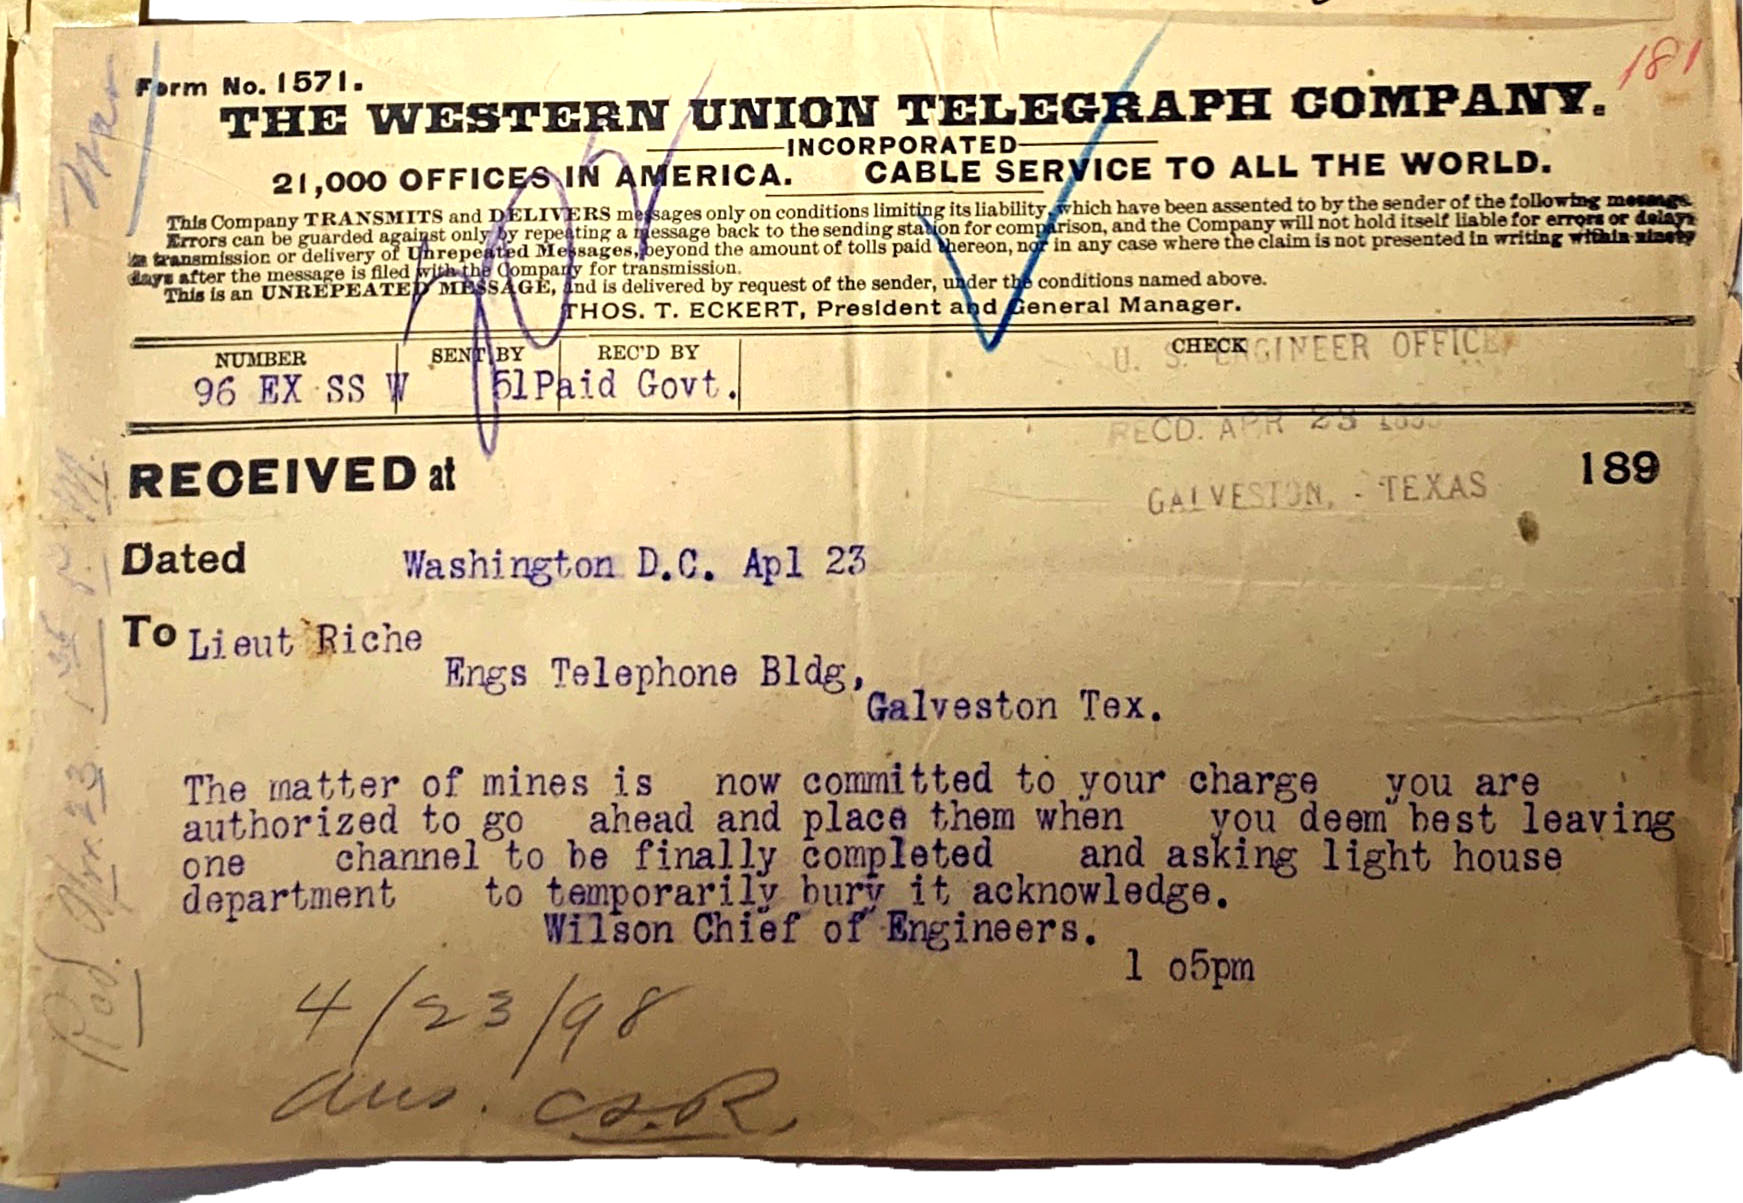 181
Form No. 1571.
THE WESTERN UNION TELEGRAPH COMPANY.
INCORPORATED
21,000 OFFICES IN AMERICA. CABLE SERVICE TO ALL THE WORLD.
This Company TRANSMITS and DELIVERS messages only on conditions limiting its liability, which have been assented to by the sender of the following message.
Errors can be guarded against only by repeating a message back to the sending station for comparison, and the Company will not hold itself liable for errors or delays
in transmission or delivery of Unrepeated Messages, beyond the amount of tolls paid thereon, nor in any case where the claim is not presented in writing within ninety
days after the message is filed with the Company for transmission.
This is an UNREPEATED MESSAGE, and is delivered by request of the sender, under the conditions named above.
THOS. T. ECKERT, President and General Manager.
NUMBER SENT BY REC'D BY CHECK
96 EX SS W 51Paid Govt.
U. S. ENGINEER OFFICE,
RECD. APR 23
GALVESTON, - TEXAS
RECEIVED at 189
Dated Washington D.C. Apl 23
To Lieut Riche
Engs Telephone Bldg,
Galveston Tex.
The matter of mines is now committed to your charge you are
authorized to go ahead and place them when you deem best leaving
one channel to be finally completed and asking light house
department to temporarily bury it acknowledge.
Wilson Chief of Engineers.
1 o5pm
4/23/98
Ans. C.S.R.